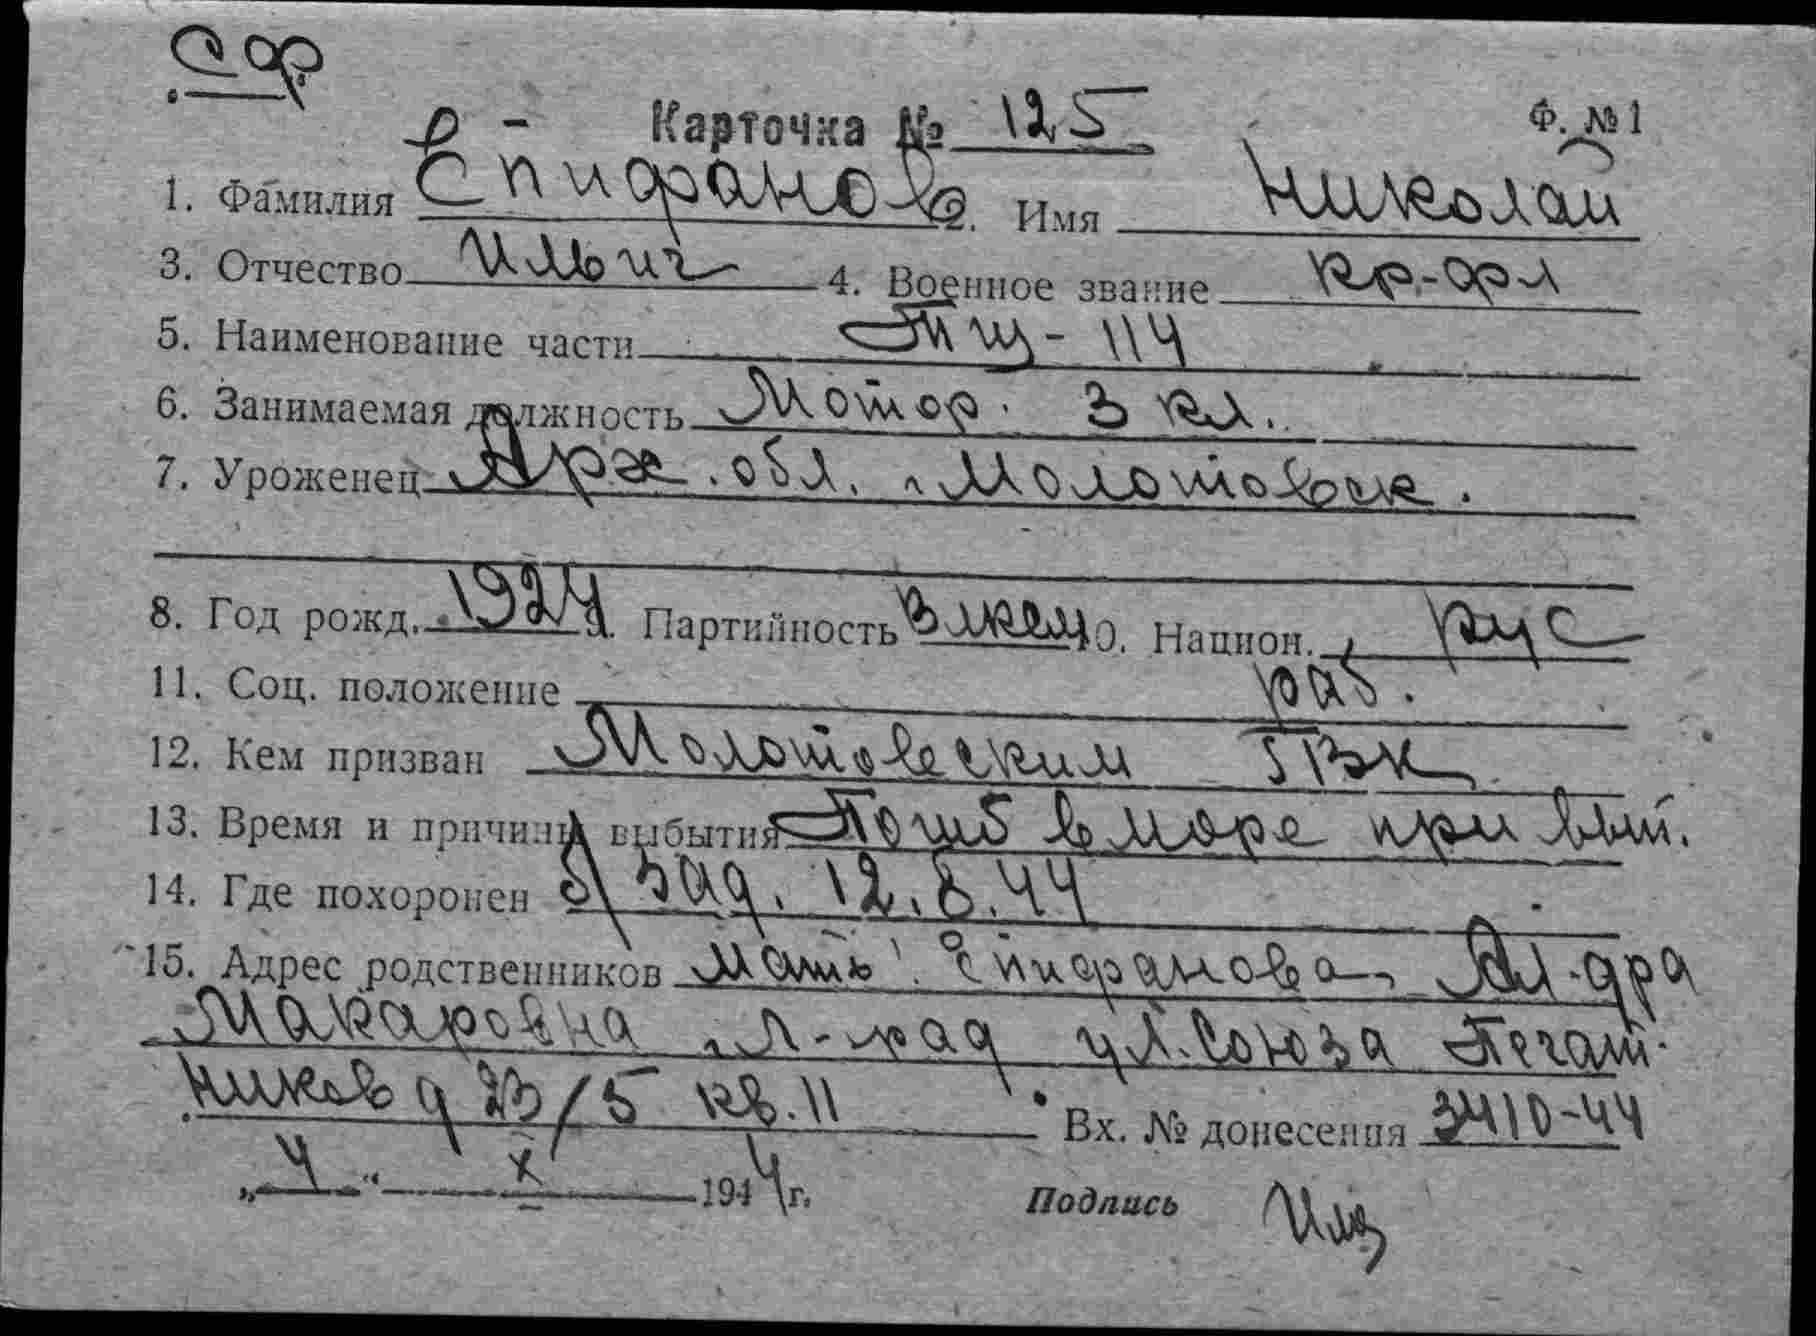 СФ
Е - Карточка № 125 Ф. № 1
1. Фамилия Епифанов 2. Имя Николай
3. Отчество Ильич 4. Военное звание кр-фл
5. Наименование части ТЩ - 114
6. Занимаемая должность Мотор. 3 кл.
7. Уроженец Арх. обл. г Молотовск.
8. Год рожд. 1924 9. Партийность Влксм 10. Национ. рус
11. Соц. положение раб.
12. Кем призван Молотовским ГВК
13. Время и причины выбытия Погиб в море при вып.
14. Где похоронен б/зад. 12.8.44
15. Адрес родственников мать Епифанова Ал-дра
Макаровна г Л-град ул. Союза Печат-
ников д 23/5 кв. 11 Вх. № донесения 3410-44
„4“ X 1944 г. Подпись